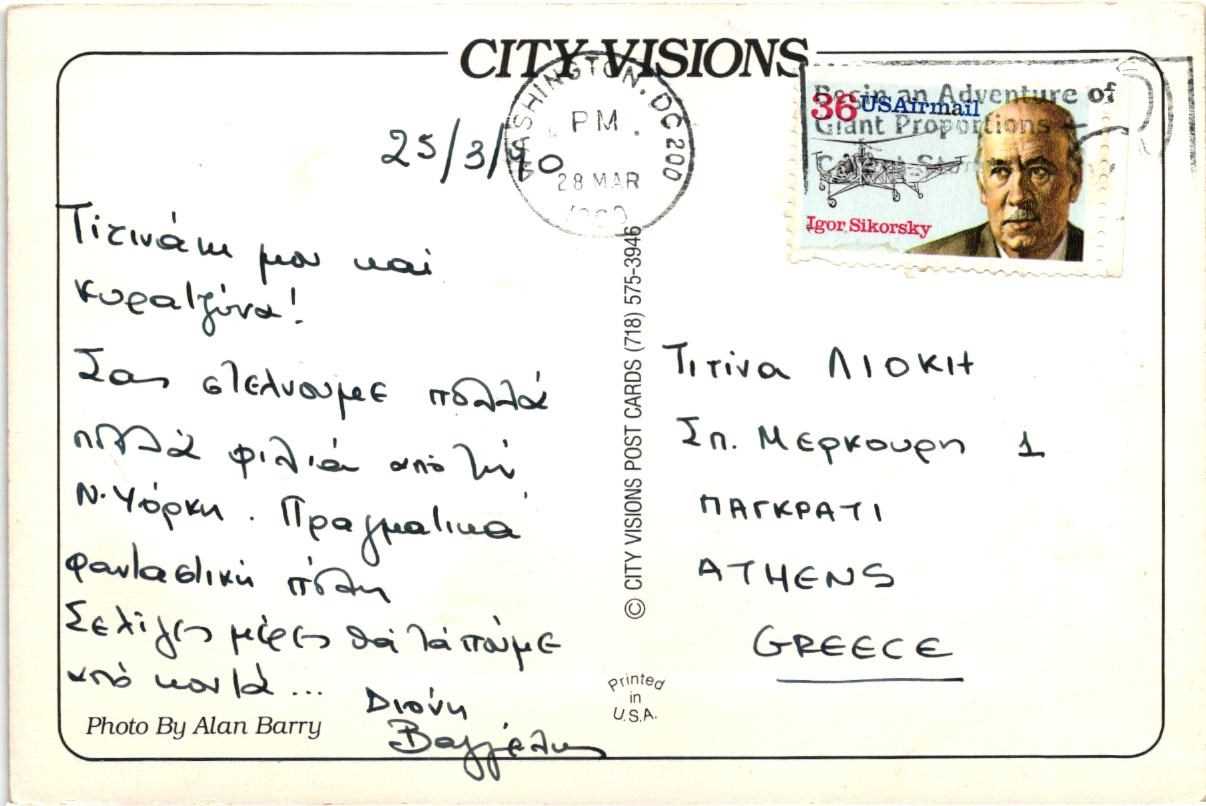 CITY VISIONS
WASHINGTON, DC 200
PM
28 MAR
36 USAirmail
Begin an Adventure of
Giant Proportions
Igor Sikorsky
25/3/90
Τιτινάκι μου και
κυρατζίνα!
Σας στέλνουμε πολλά
πολλά φιλιά από τήν
Ν. Υόρκη. Πραγματικά
φανταστική πόλη
Σε λίγες μέρες θα τα πούμε
από κοντά...
Διονύ
Βαγγέλης
Photo By Alan Barry
© CITY VISIONS POST CARDS (718) 575-3946
Printed
in
U.S.A.
Τιτίνα ΛΙΟΚΗ
Σπ. Μερκουρη 1
ΠΑΓΚΡΑΤΙ
ATHENS
GREECE